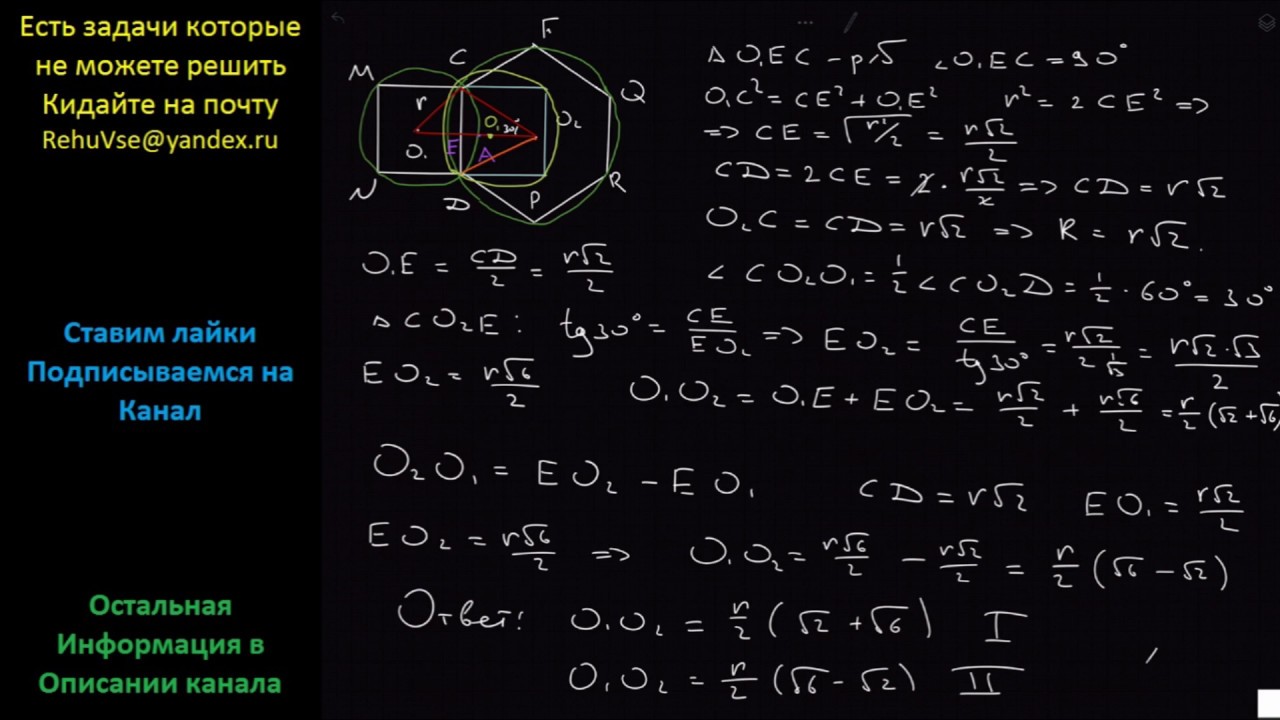 Есть задачи которые
не можете решить
Кидайте на почту
RehuVse@yandex.ru
Ставим лайки
Подписываемся на
Канал
Остальная
Информация в
Описании канала
F
C
M
Q
r
O₁ 30°
O₂
O₁
E
A
N
D
P
R
△ O₁EC – р/б ∠O₁EC = 90°
O₁C² = CE² + O₁E² r² = 2CE² =>
=> CE = √(r²/2) = r√2/2
CD = 2CE = 2 · r√2/2 => CD = r√2
O₂C = CD = r√2 => R = r√2.
O₁E = CD/2 = r√2/2
∠CO₂O₁ = 1/2 ∠CO₂D = 1/2 · 60° = 30°
△CO₂E: tg30° = CE/EO₂ => EO₂ = CE/tg30° = r√2/(2 1/√3) = r√2·√3/2
EO₂ = r√6/2 O₁O₂ = O₁E + EO₂ = r√2/2 + r√6/2 = r/2 (√2 + √6)
O₂O₁ = EO₂ – EO₁ CD = r√2 EO₁ = r√2/2
EO₂ = r√6/2 => O₁O₂ = r√6/2 – r√2/2 = r/2 (√6 – √2)
Ответ: O₁O₂ = r/2 (√2 + √6) I
O₁O₂ = r/2 (√6 – √2) II